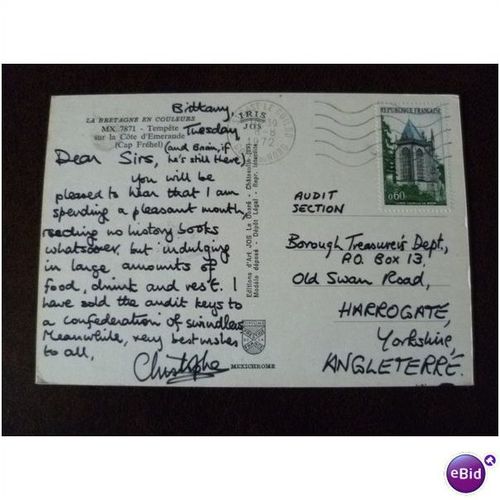 LA BRETAGNE EN COULEURS
MX. 7871 - Tempête
sur la Côte d'Emeraude
(Cap Fréhel)
Brittany,
Tuesday
Dear Sirs, (and Brain, if
he's still there)
You will be
pleased to hear that I am
spending a pleasant month
reading no history books
whatsoever, but indulging
in large amounts of
food, drink and rest. I
have sold the audit keys to
a confederation of swindlers.
Meanwhile, very best wishes
to all,
Christophe
IRIS
JOS
Editions d'Art JOS Le Doaré - Châteaulin
Modèle déposé - Dépôt Légal - Repr. interdite
MEXICHROME
72
REPUBLIQUE FRANÇAISE
0,60
AUDIT
SECTION
Borough Treasurer's Dept.,
P.O. BOX 13,
Old Swan Road,
HARROGATE,
Yorkshire,
ANGLETERRE.
eBid